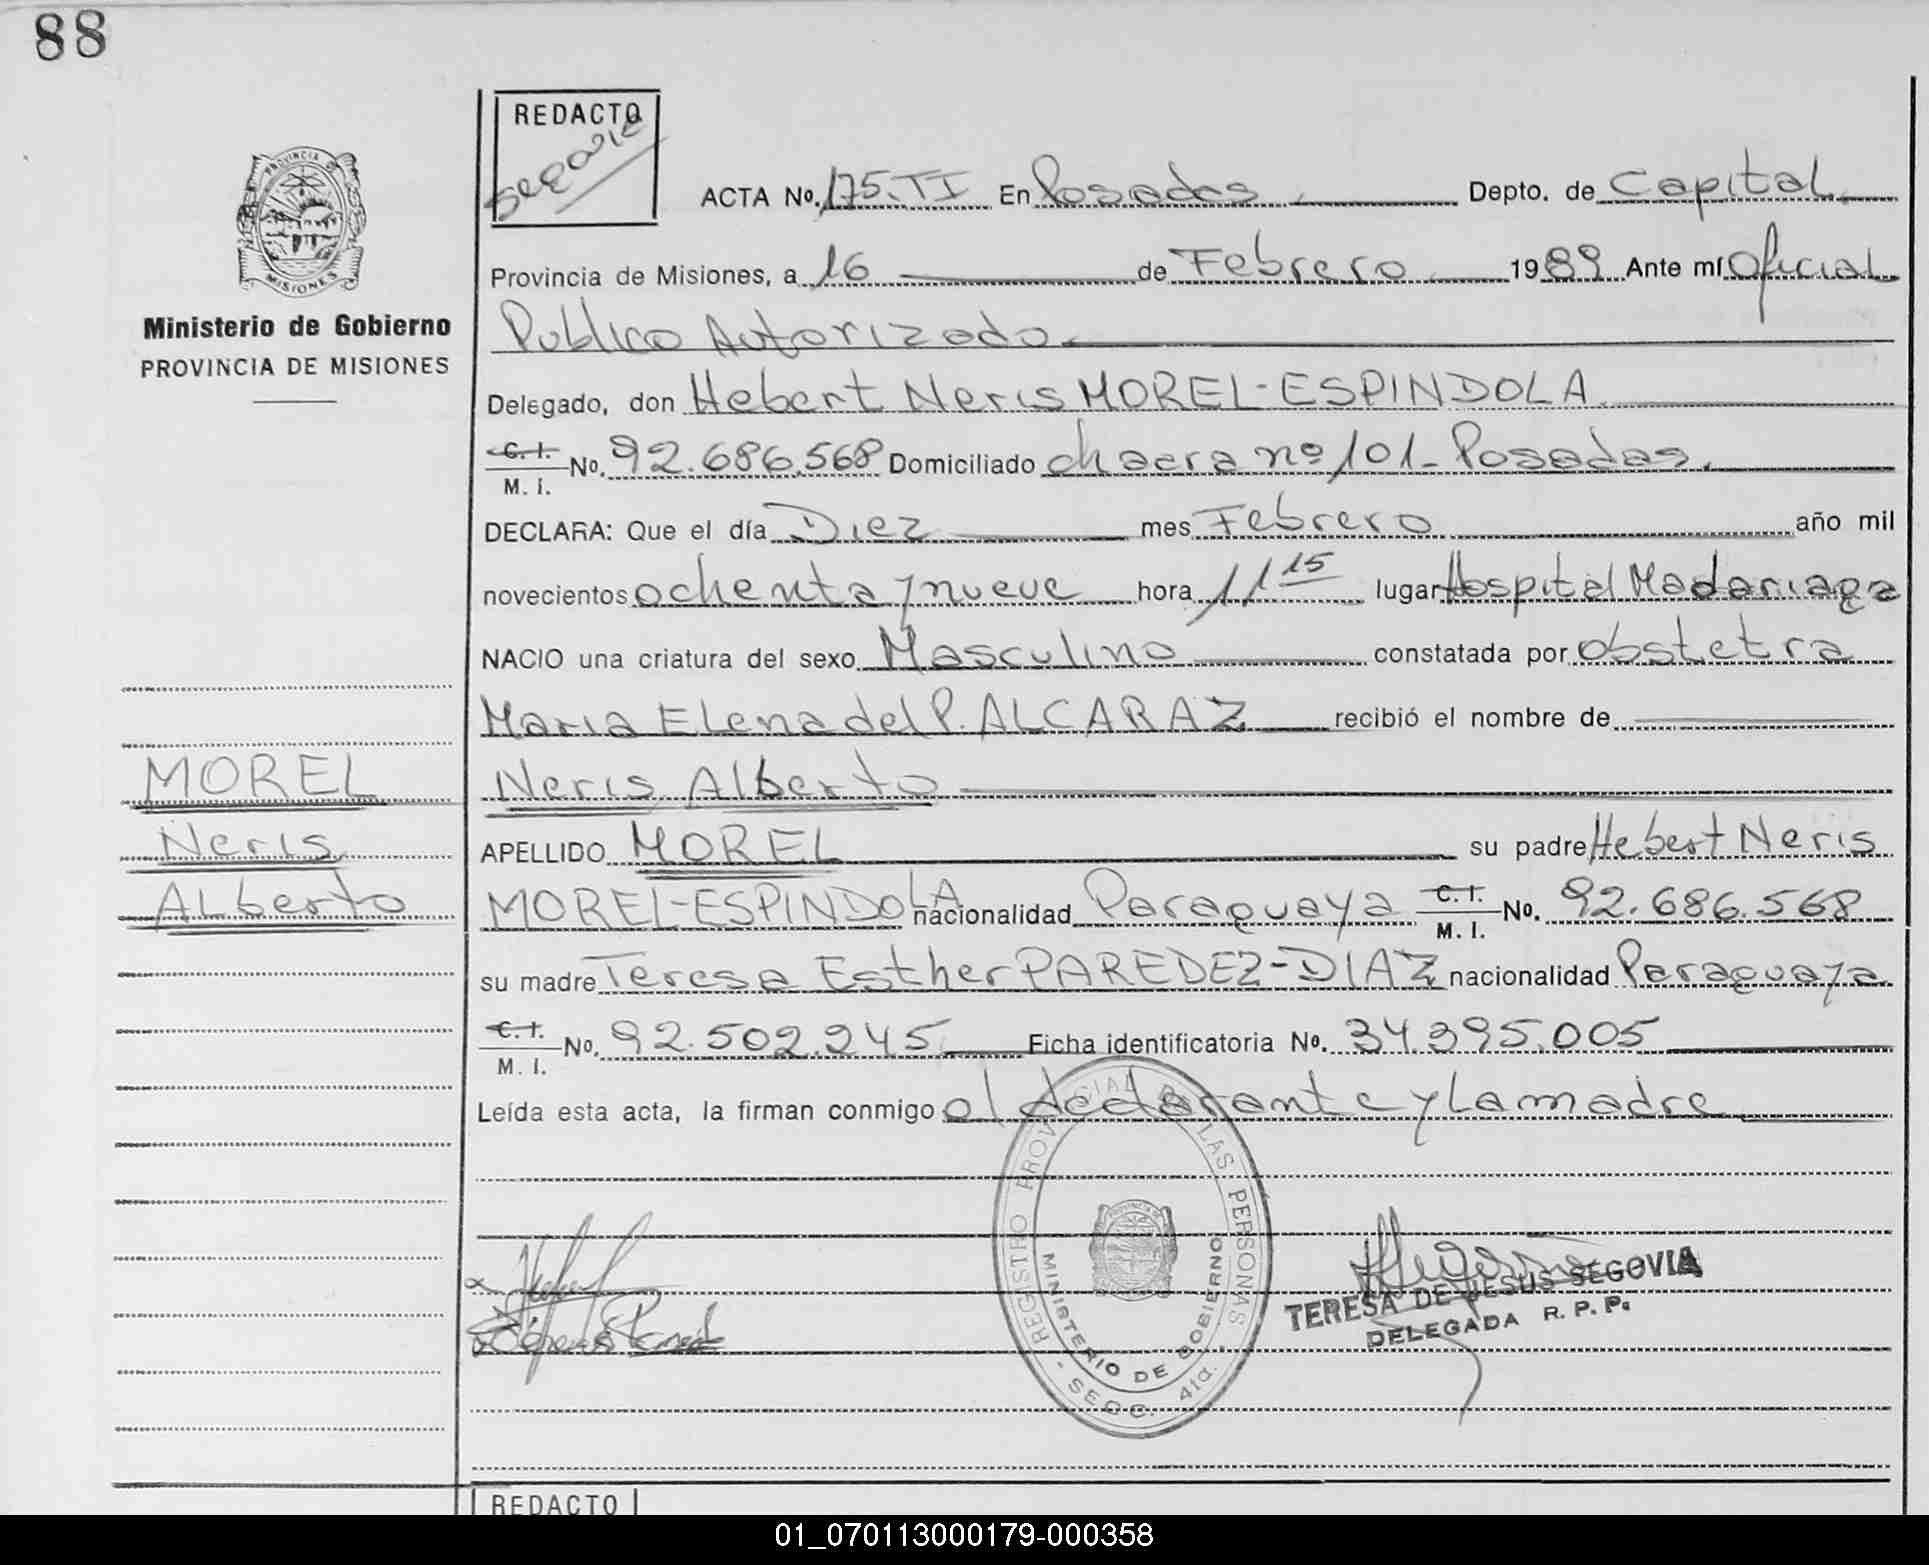 88
REDACTO
Segovia
ACTA No. 175.TI En Posadas Depto. de Capital
PROVINCIA DE
MISIONES
Ministerio de Gobierno
PROVINCIA DE MISIONES
Provincia de Misiones, a 16 de Febrero 1989 Ante mí Oficial
Publico Autorizado
Delegado, don Hebert Neris MOREL-ESPINDOLA
C. I. / M. I. No. 92.686.568 Domiciliado chacra nº 101- Posadas.
DECLARA: Que el día Diez mes Febrero año mil
novecientos ochenta y nueve hora 11 15 lugar Hospital Madariaga
NACIO una criatura del sexo Masculino constatada por obstetra
Maria Elena del P. ALCARAZ recibió el nombre de
Neris Alberto
MOREL
Neris
Alberto
APELLIDO MOREL su padre Hebert Neris
MOREL-ESPINDOLA nacionalidad Paraguaya C. I. / M. I. No. 92.686.568
su madre Teresa Esther PAREDEZ-DIAZ nacionalidad Paraguaya
C. I. / M. I. No. 92.502.245 Ficha identificatoria No. 34.395.005
Leída esta acta, la firman conmigo el declarante y la madre
REGISTRO PROVINCIAL DE LAS PERSONAS
MINISTERIO DE GOBIERNO
- SECC. 4ta. -
TERESA DE JESUS SEGOVIA
DELEGADA R. P. P.
REDACTO
01_070113000179-000358